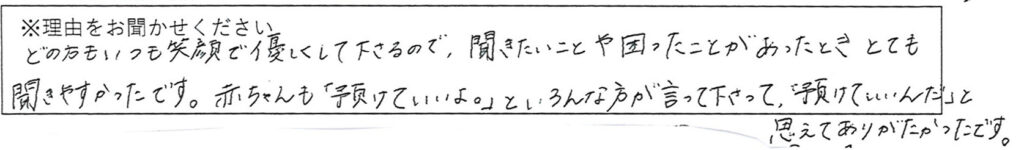 ※理由をお聞かせください
どの方もいつも笑顔で優しくして下さるので、聞きたいことや困ったことがあったとき とても
聞きやすかったです。赤ちゃんも「預けていいよ。」といろんな方が言って下さって、「預けていいんだ」と
思えてありがたかったです。